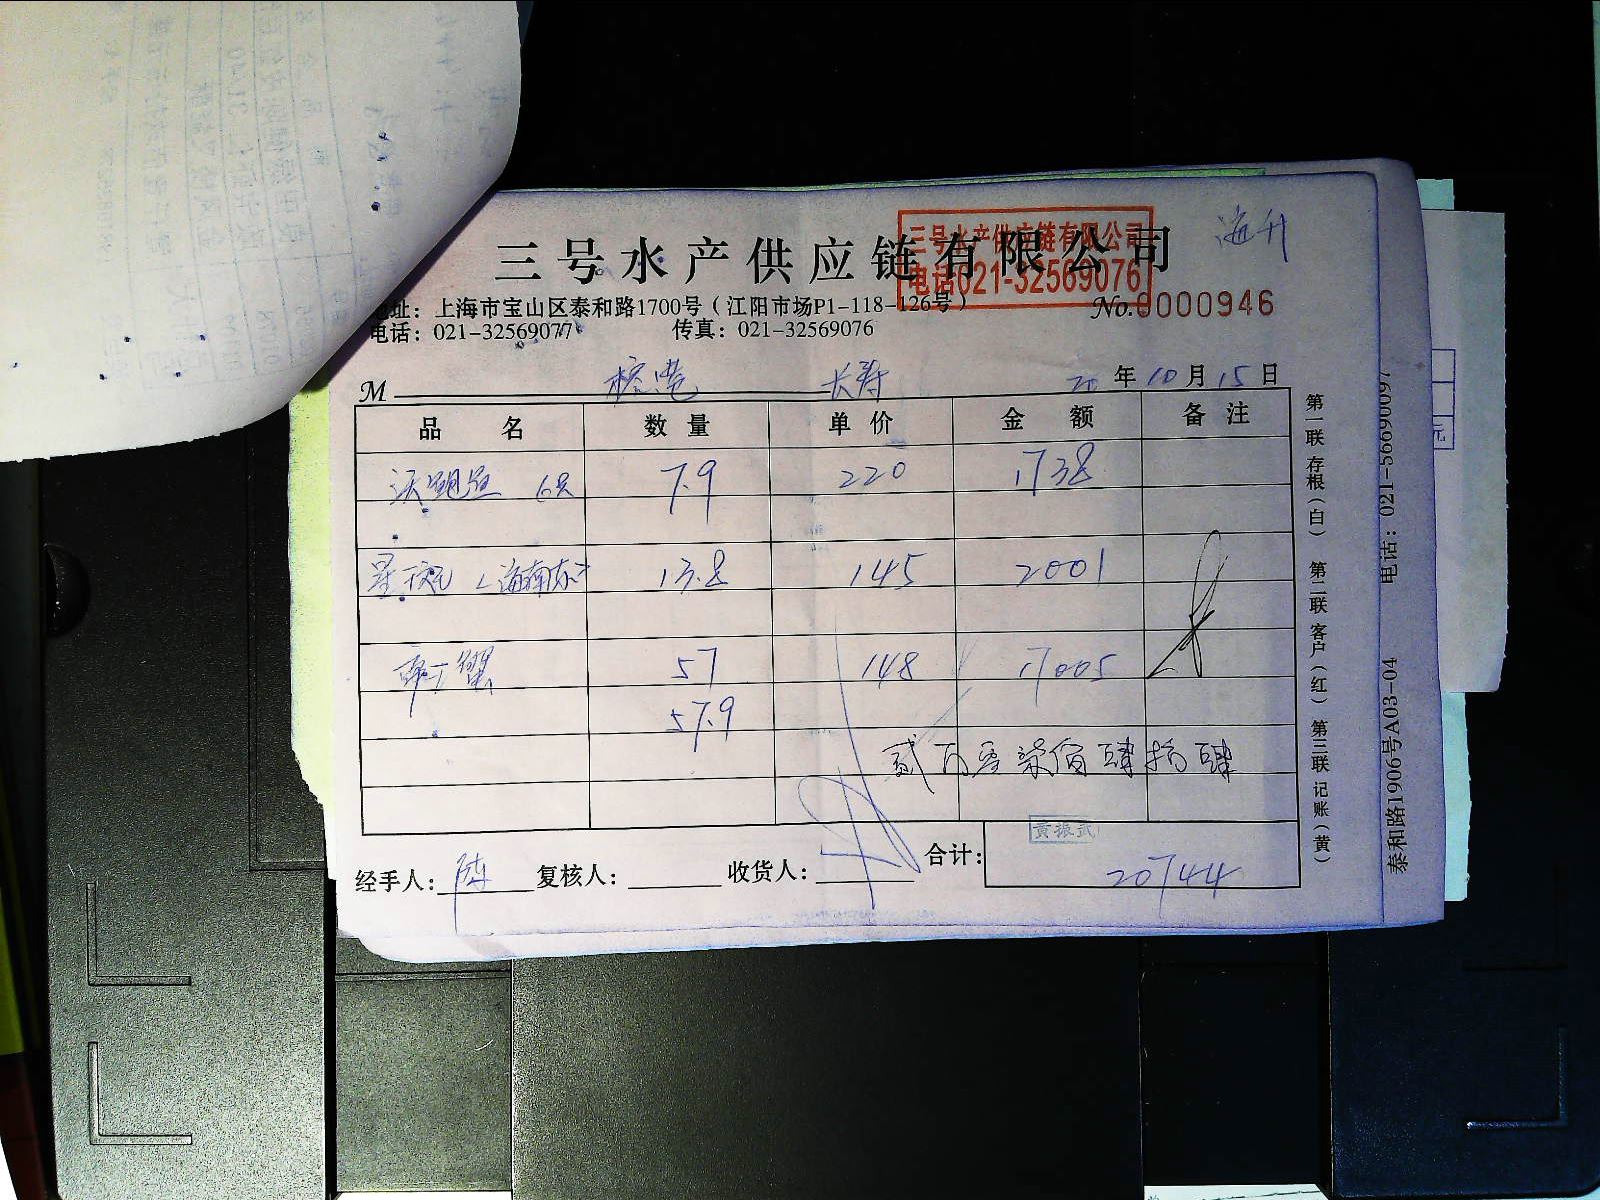 三号水产供应链有限公司
三号水产供应链有限公司
电话021-32569076
海升
地址：上海市宝山区泰和路1700号（江阳市场P1-118-126号）
No.0000946
电话：021-32569077 传真：021-32569076
M 长寿 20 年 10 月 15 日
品 名 数 量 单 价 金 额 备 注
6只 7.9 220 1738
星斑 13.8 145 2001
57 148 17005
57.9
贰万零柒佰肆拾肆
黄振武
经手人：陈 复核人： 收货人： 合计： 20744
第一联 存根（白） 第二联 客户（红） 第三联 记账（黄）
电话：021-56690097
泰和路1906号A03-04
元